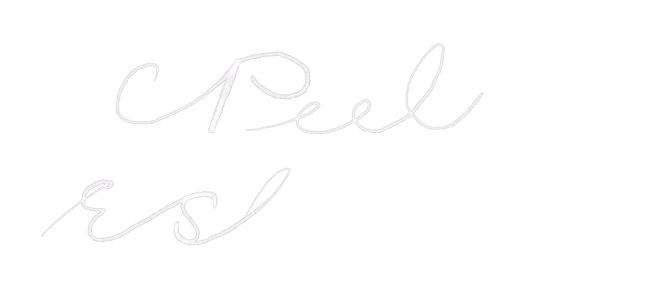 Peel
Esl